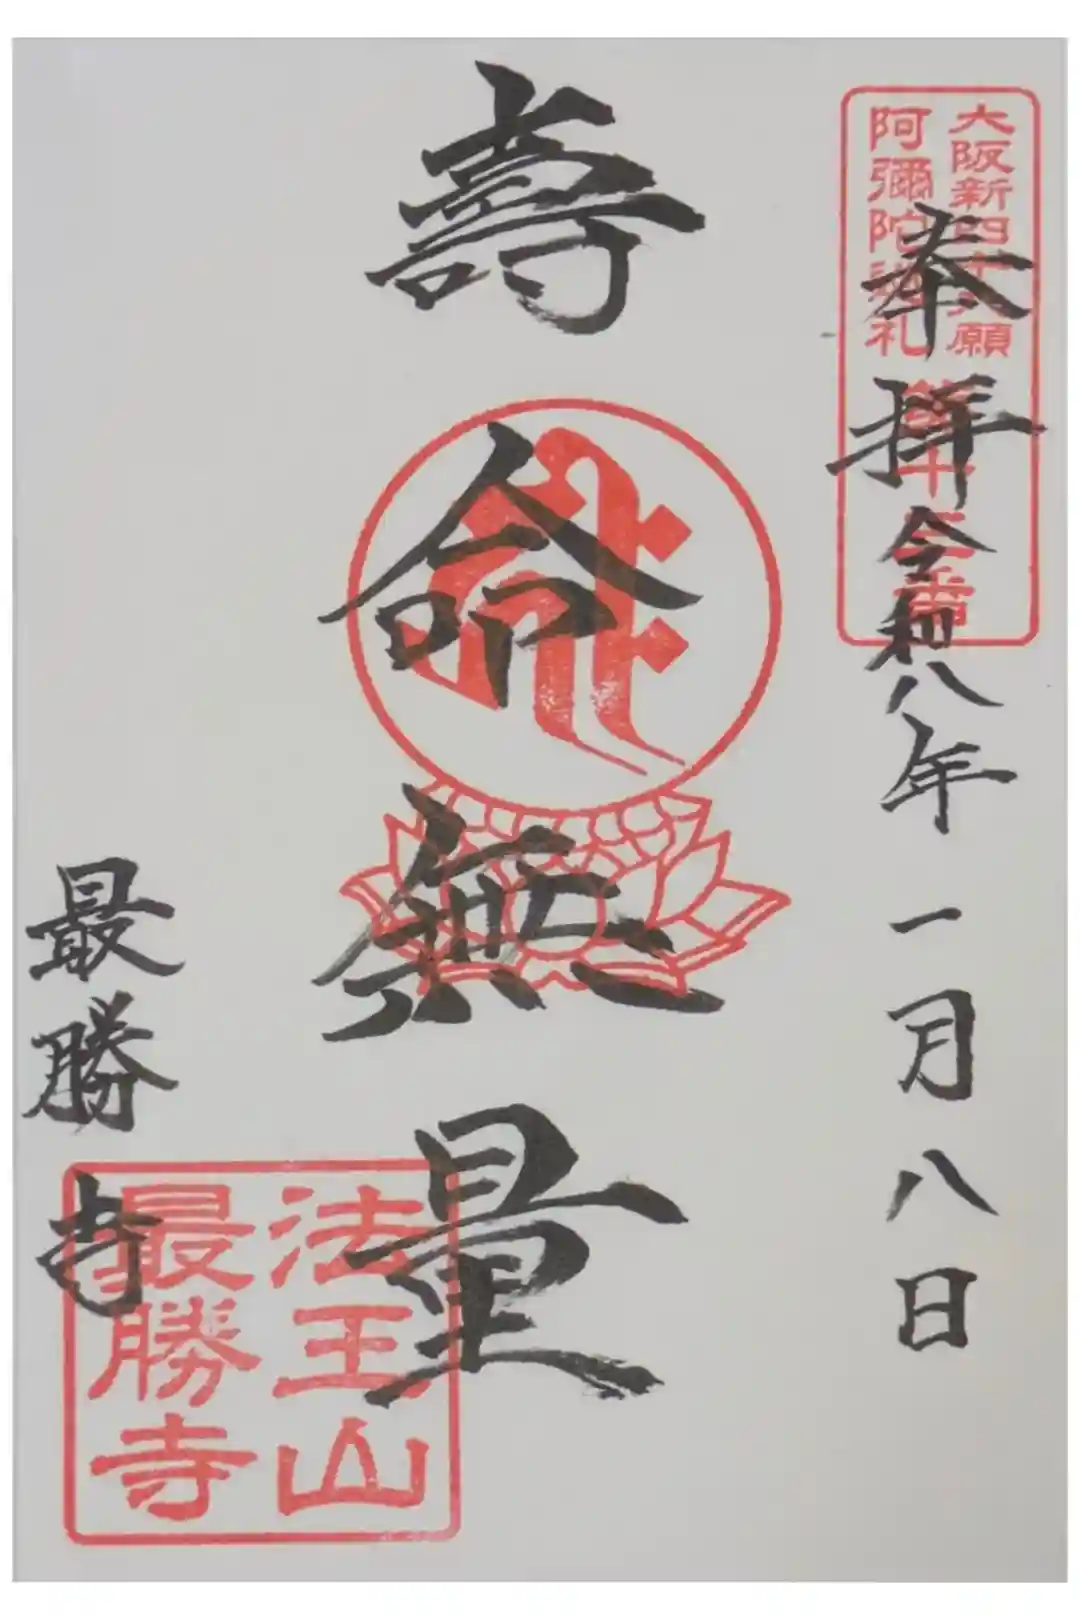 大阪新四十八願
阿彌陀巡礼
第十三番
奉拝
令和八年一月八日
壽命無量
法王山
最勝寺
最勝寺